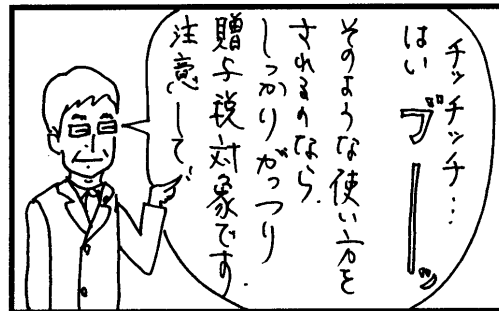 チッチッチ…
はい ブーーッ
そのような使い方を
されるのなら、
しっかりがっつり
贈与税対象です。
注意して、